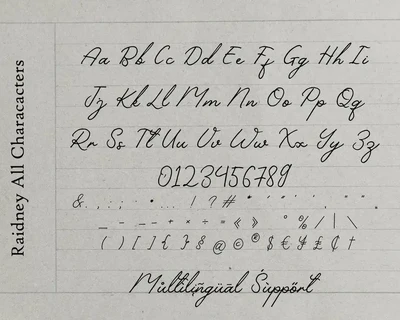 Raidney All Characacters
Aa Bb Cc Dd Ee Ff Gg Hh Ii
Jj Kk Ll Mm Nn Oo Pp Qq
Rr Ss Tt Uu Vv Ww Xx Yy Zz
0123456789
&. , : ; · • ... ! ? # " ' " "
_ - – — + × ÷ = « » ° % / | \
( ) [ ] { } § @ © ® $ € ¥ £ ₵ †
Múltilíñgüäl Súppört